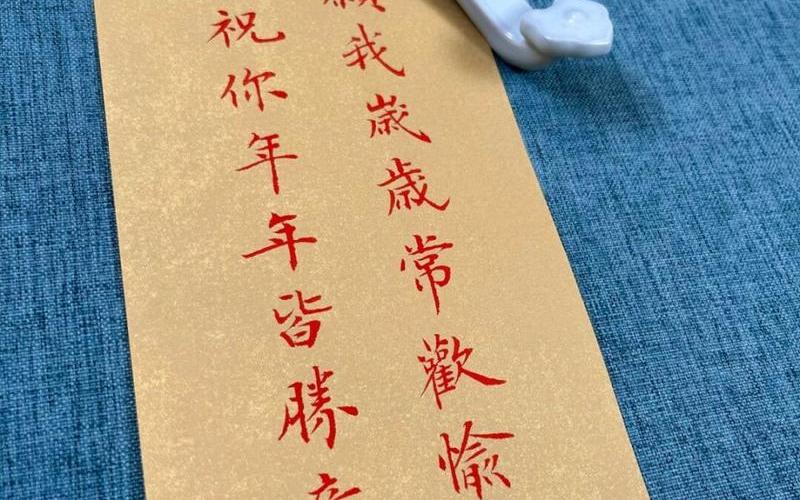 願我歲歲常歡愉
祝你年年皆勝意